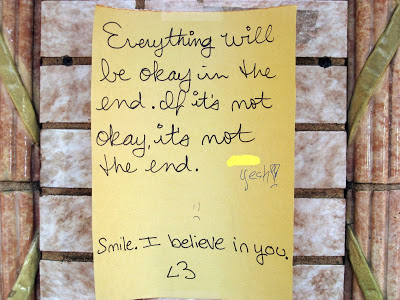 Everything will
be okay in the
end. If it's not
okay, it's not
the end.
yeah!!
:)
Smile. I believe in you.
<3